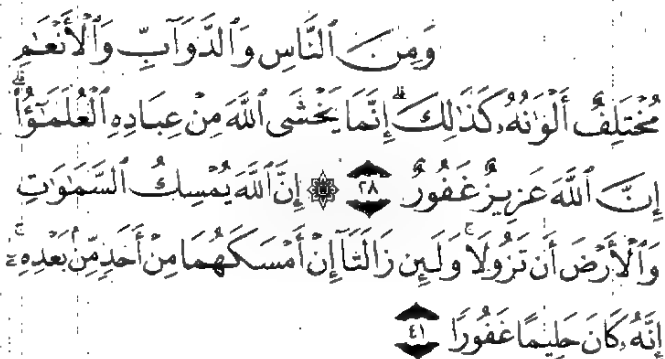 وَمِنَ ٱلنَّاسِ وَٱلدَّوَآبِّ وَٱلْأَنْعَٰمِ
مُخْتَلِفٌ أَلْوَٰنُهُۥ كَذَٰلِكَ ۗ إِنَّمَا يَخْشَى ٱللَّهَ مِنْ عِبَادِهِ ٱلْعُلَمَٰٓؤُا۟ ۗ
إِنَّ ٱللَّهَ عَزِيزٌ غَفُورٌ ٢٨ ۞ إِنَّ ٱللَّهَ يُمْسِكُ ٱلسَّمَٰوَٰتِ
وَٱلْأَرْضَ أَن تَزُولَا ۚ وَلَئِن زَالَتَآ إِنْ أَمْسَكَهُمَا مِنْ أَحَدٍ مِّنۢ بَعْدِهِۦٓ ۚ
إِنَّهُۥ كَانَ حَلِيمًا غَفُورًا ٤١